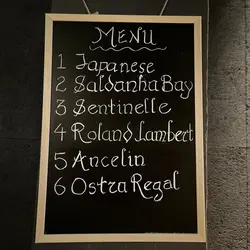 MENU
1 Japanese
2 Saldanha Bay
3 Sentinelle
4 Roland Lambert
5 Ancelin
6 Ostra Regal